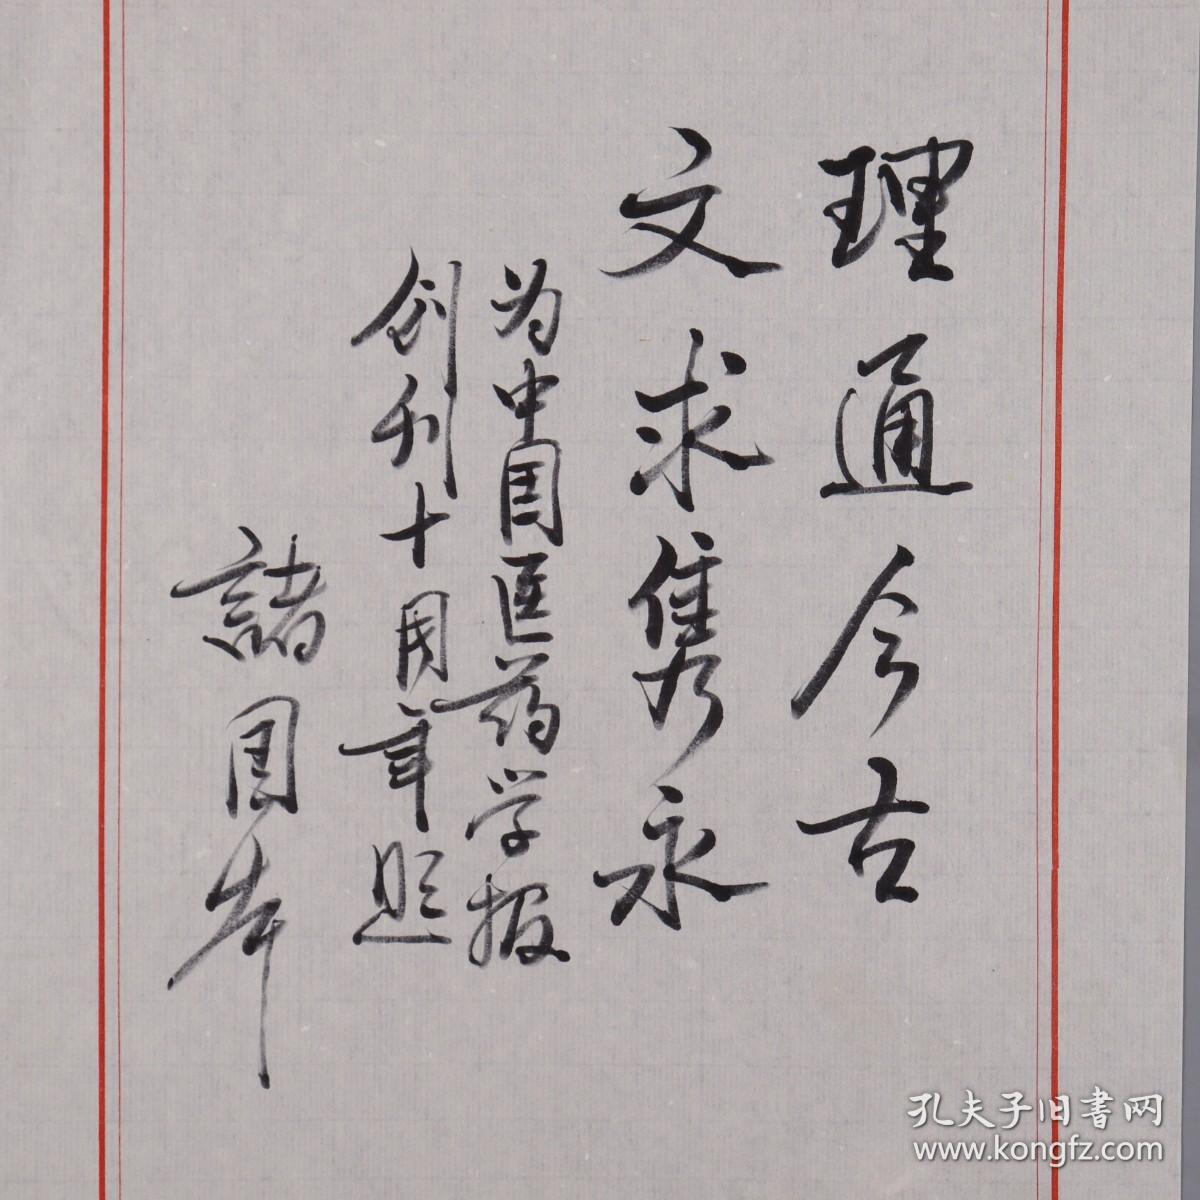 理通今古
文求隽永
为中国医药学报
创刊十周年题
諸国本
孔夫子旧書网
www.kongfz.com